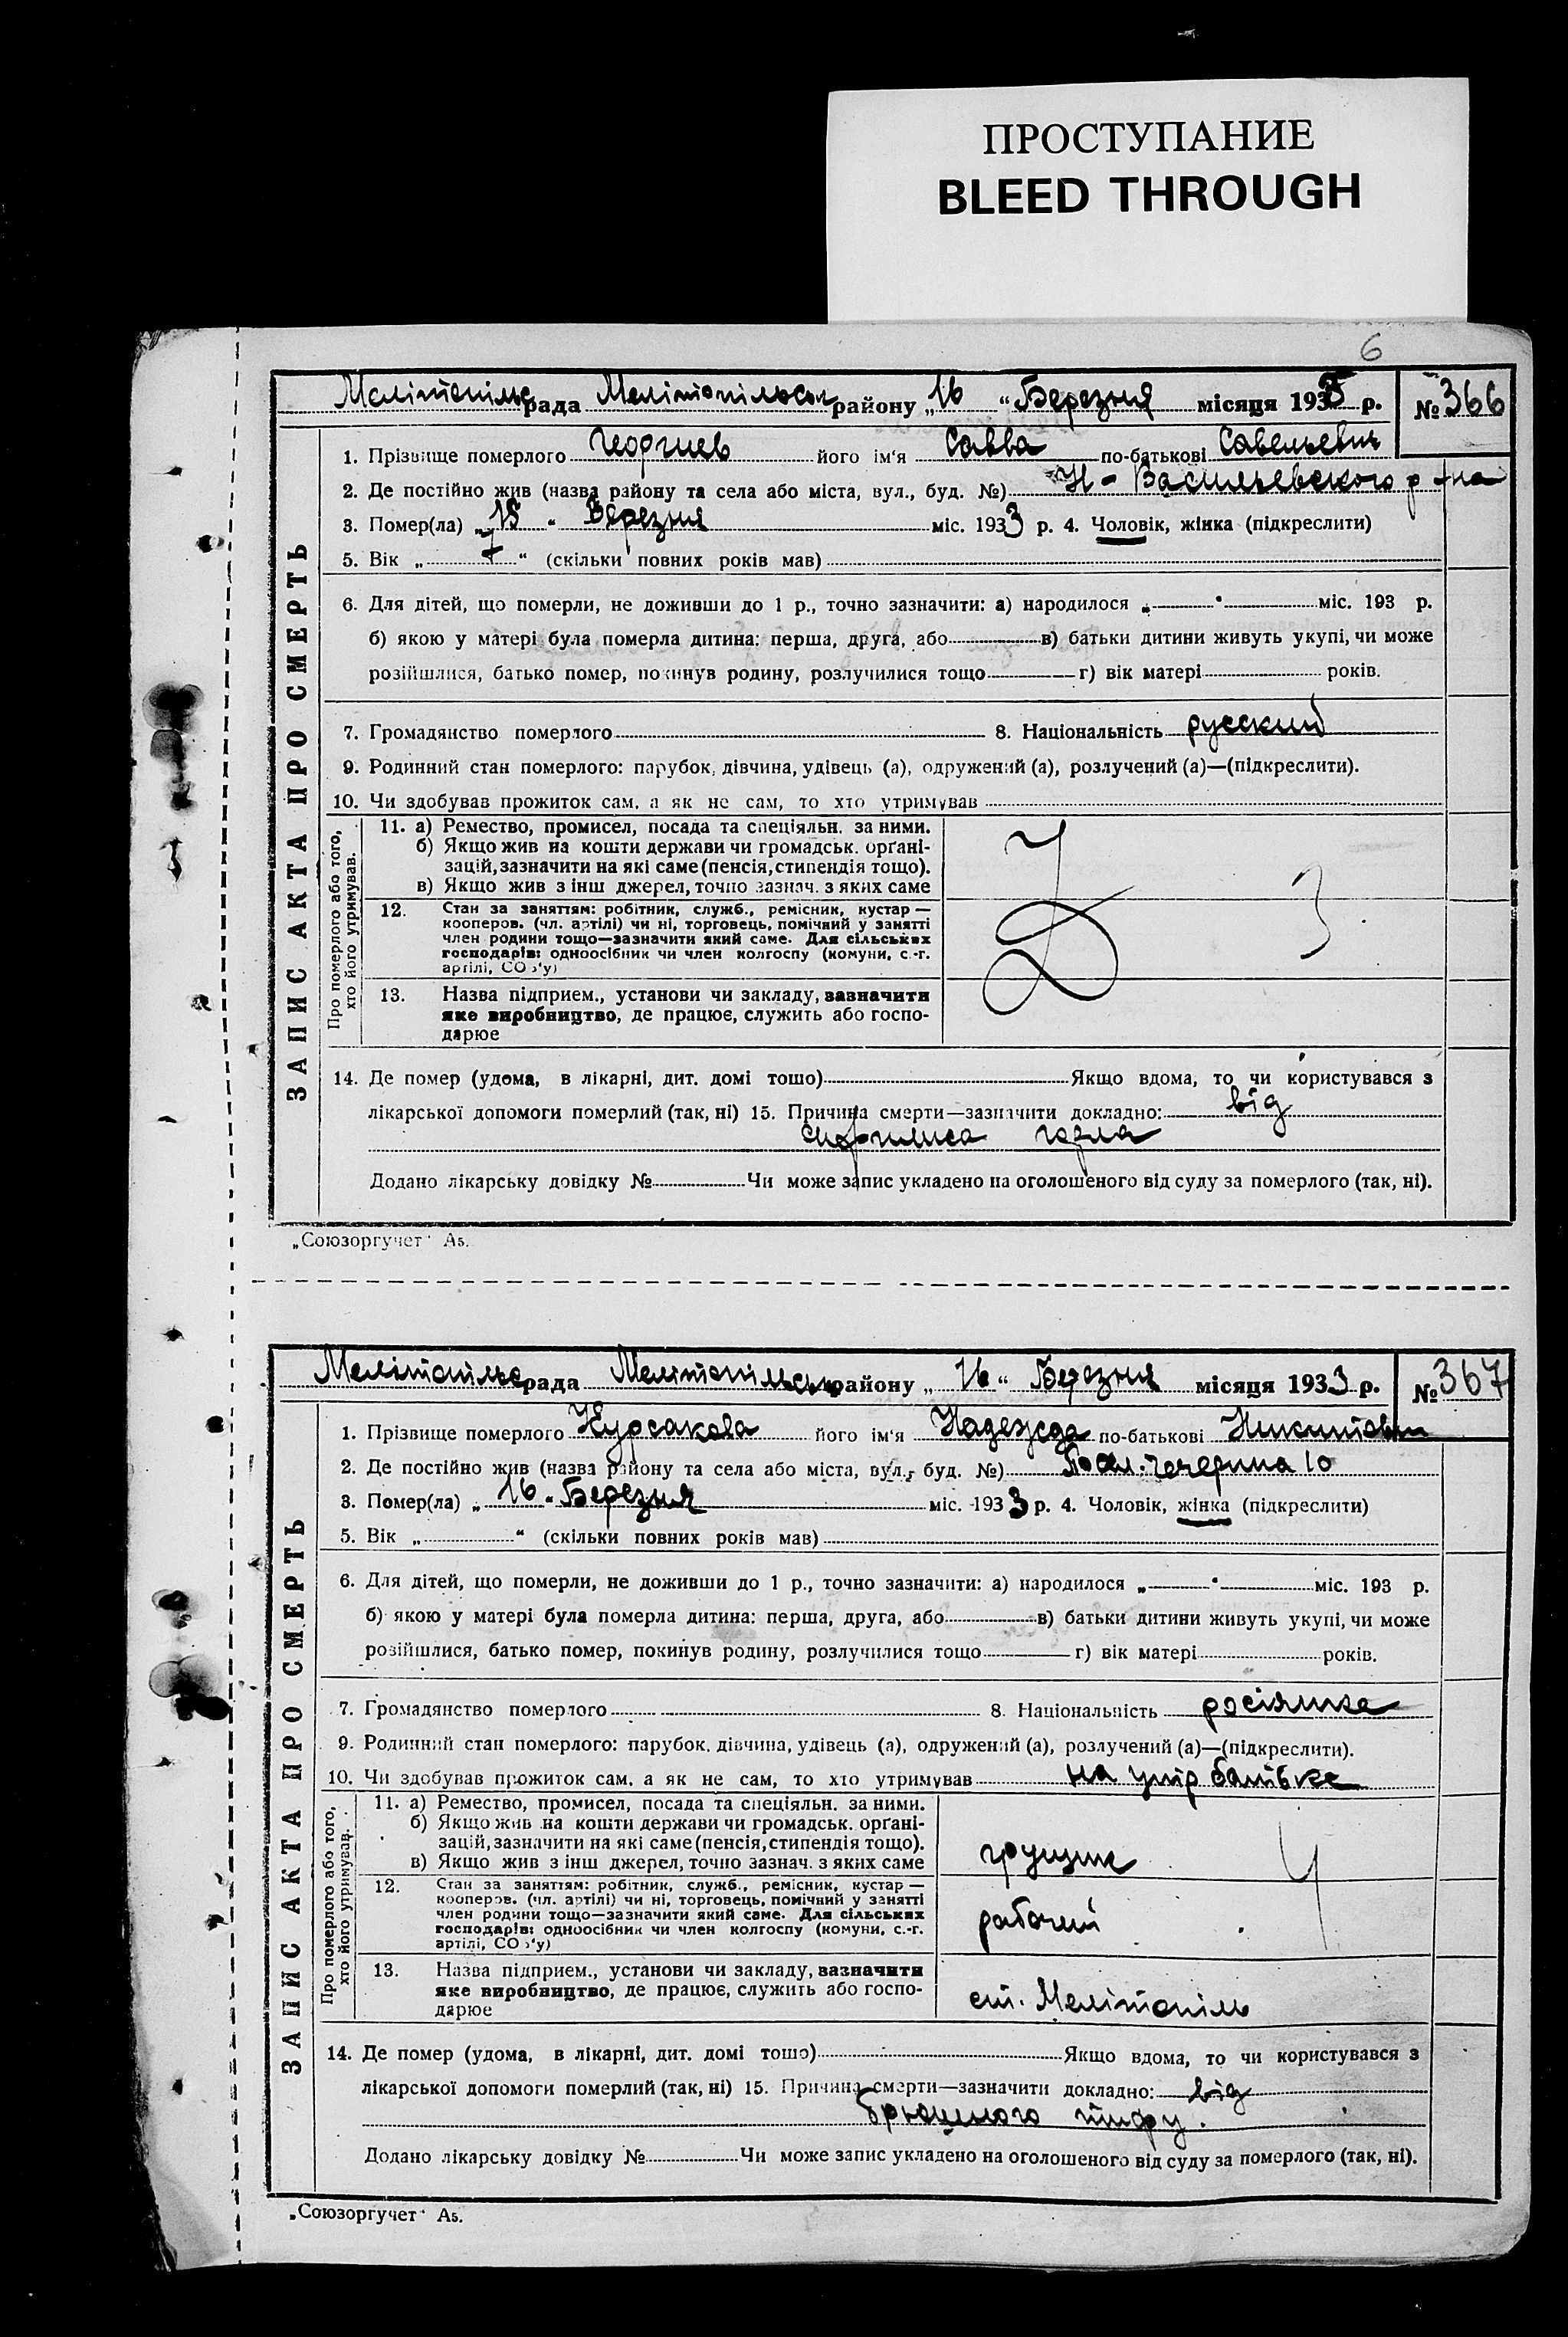 ПРОСТУПАНИЕ
BLEED THROUGH
6
Мелітопільс рада Мелітопільськ району „16“ Березня місяця 1933 р. № 366
1. Прізвище померлого Георгиев його ім‘я Савва по-батькові Савельевич
2. Де постійно жив (назва району та села або міста, вул., буд. №) Н-Васильевского р-на
3. Помер(ла) „15“ Березня міс. 1933 р. 4. Чоловік, жінка (підкреслити)
5. Вік „7“ (скільки повних років мав)
6. Для дітей, що померли, не доживши до 1 р., точно зазначити: а) народилося „ “ міс. 193 р.
б) якою у матері була померла дитина: перша, друга, або в) батьки дитини живуть укупі, чи може
розійшлися, батько помер, покинув родину, розлучилися тощо г) вік матері років.
7. Громадянство померлого 8. Національність русский
9. Родинний стан померлого: парубок, дівчина, удівець (а), одружений (а), розлучений (а)—(підкреслити).
10. Чи здобував прожиток сам, а як не сам, то хто утримував
ЗАПИС АКТА ПРО СМЕРТЬ
Про померлого або того, хто його утримував.
11. а) Ремество, промисел, посада та спеціяльн. за ними.
б) Якщо жив на кошти держави чи громадськ. орґані-
зацій, зазначити на які саме (пенсія, стипендія тощо).
в) Якщо жив з інш джерел, точно зазнач. з яких саме
3
12. Стан за заняттям: робітник, служб., ремісник, кустар —
кооперов. (чл. артілі) чи ні, торговець, помічний у занятті
член родини тощо—зазначити який саме. Для сільських
господарів: одноосібник чи член колгоспу (комуни, с.-г.
артілі, СОЗ‘у)
13. Назва підприєм., установи чи закладу, зазначити
яке виробництво, де працює, служить або госпо-
дарює
14. Де помер (удома, в лікарні, дит. домі тощо) Якщо вдома, то чи користувався з
лікарської допомоги померлий (так, ні) 15. Причина смерти—зазначити докладно: від
горла
Додано лікарську довідку № Чи може запис укладено на оголошеного від суду за померлого (так, ні).
„Союзоргучет“ А5.
Мелітопільс рада Мелітопільськ району „16“ Березня місяця 1933 р. № 367
1. Прізвище померлого Курсакова його ім‘я Надежда по-батькові Никитовн
2. Де постійно жив (назва району та села або міста, вул., буд. №) 10
3. Помер(ла) „16“ Березня міс. 1933 р. 4. Чоловік, жінка (підкреслити)
5. Вік „ “ (скільки повних років мав)
6. Для дітей, що померли, не доживши до 1 р., точно зазначити: а) народилося „ “ міс. 193 р.
б) якою у матері була померла дитина: перша, друга, або в) батьки дитини живуть укупі, чи може
розійшлися, батько помер, покинув родину, розлучилися тощо г) вік матері років.
7. Громадянство померлого 8. Національність росіянка
9. Родинний стан померлого: парубок, дівчина, удівець (а), одружений (а), розлучений (а)—(підкреслити).
10. Чи здобував прожиток сам, а як не сам, то хто утримував на утр батьке
ЗАПИС АКТА ПРО СМЕРТЬ
Про померлого або того, хто його утримував.
11. а) Ремество, промисел, посада та спеціяльн. за ними.
б) Якщо жив на кошти держави чи громадськ. орґані-
зацій, зазначити на які саме (пенсія, стипендія тощо).
в) Якщо жив з інш джерел, точно зазнач. з яких саме
грущик 4
12. Стан за заняттям: робітник, служб., ремісник, кустар —
кооперов. (чл. артілі) чи ні, торговець, помічний у занятті
член родини тощо—зазначити який саме. Для сільських
господарів: одноосібник чи член колгоспу (комуни, с.-г.
артілі, СОЗ‘у)
рабочий
13. Назва підприєм., установи чи закладу, зазначити
яке виробництво, де працює, служить або госпо-
дарює
ст. Мелітопіль
14. Де помер (удома, в лікарні, дит. домі тощо) Якщо вдома, то чи користувався з
лікарської допомоги померлий (так, ні) 15. Причина смерти—зазначити докладно: від
брюшного тифу.
Додано лікарську довідку № Чи може запис укладено на оголошеного від суду за померлого (так, ні).
„Союзоргучет“ А5.